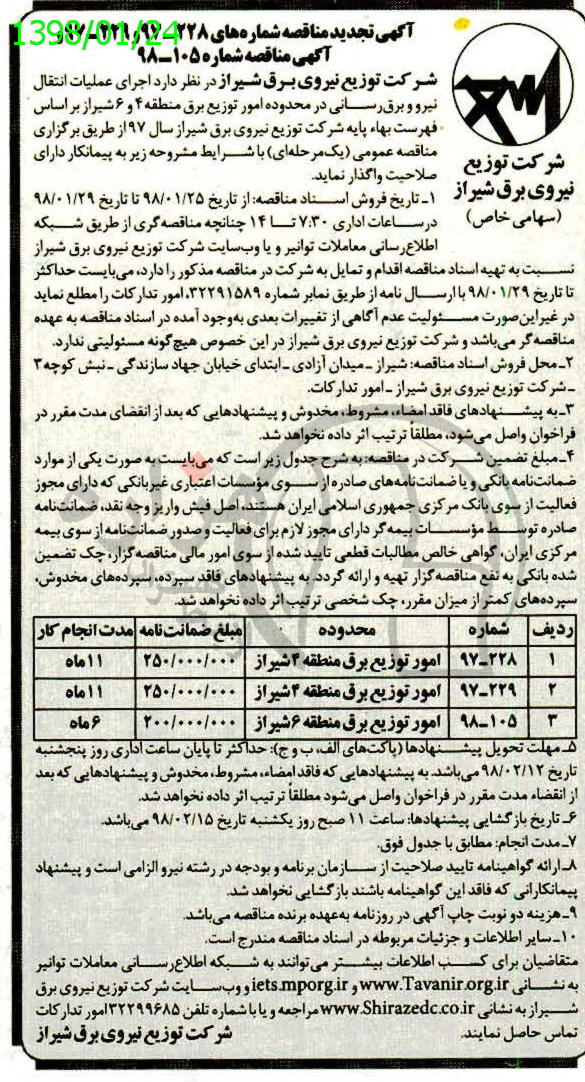 1398/01/24
آگهی تجدید مناقصه شماره‌های ۲۲۸-۹۷ و ۲۲۹-۹۷ و
آگهی مناقصه شماره ۱۰۵-۹۸
شرکت توزیع
نیروی برق شیراز
(سهامی خاص)
شرکت توزیع نیروی برق شیراز در نظر دارد اجرای عملیات انتقال
نیرو و برق‌رسانی در محدوده امور توزیع برق منطقه ۴ و ۶ شیراز بر اساس
فهرست بهاء پایه شرکت توزیع نیروی برق شیراز سال ۹۷ از طریق برگزاری
مناقصه عمومی (یک‌مرحله‌ای) با شرایط مشروحه زیر به پیمانکار دارای
صلاحیت واگذار نماید.
۱- تاریخ فروش اسناد مناقصه: از تاریخ ۹۸/۰۱/۲۵ تا تاریخ ۹۸/۰۱/۲۹
در ساعات اداری ۷:۳۰ تا ۱۴ چنانچه مناقصه‌گری از طریق شبکه
اطلاع‌رسانی معاملات توانیر و یا وب‌سایت شرکت توزیع نیروی برق شیراز
نسبت به تهیه اسناد مناقصه اقدام و تمایل به شرکت در مناقصه مذکور را دارد، می‌بایست حداکثر
تا تاریخ ۹۸/۰۱/۲۹ با ارسال نامه از طریق نمابر شماره ۳۲۲۹۱۵۸۹، امور تدارکات را مطلع نماید
در غیر این‌صورت مسئولیت عدم آگاهی از تغییرات بعدی به‌وجود آمده در اسناد مناقصه به عهده
مناقصه‌گر می‌باشد و شرکت توزیع نیروی برق شیراز در این خصوص هیچ‌گونه مسئولیتی ندارد.
۲- محل فروش اسناد مناقصه: شیراز - میدان آزادی - ابتدای خیابان جهاد سازندگی - نبش کوچه ۳
- شرکت توزیع نیروی برق شیراز - امور تدارکات.
۳- به پیشنهادهای فاقد امضاء، مشروط، مخدوش و پیشنهادهایی که بعد از انقضای مدت مقرر در
فراخوان واصل می‌شود، مطلقاً ترتیب اثر داده نخواهد شد.
۴- مبلغ تضمین شرکت در مناقصه: به شرح جدول زیر است که می‌بایست به صورت یکی از موارد
ضمانت‌نامه بانکی و یا ضمانت‌نامه‌های صادره از سوی مؤسسات اعتباری غیربانکی که دارای مجوز
فعالیت از سوی بانک مرکزی جمهوری اسلامی ایران هستند، اصل فیش واریز وجه نقد، ضمانت‌نامه
صادره توسط مؤسسات بیمه‌گر دارای مجوز لازم برای فعالیت و صدور ضمانت‌نامه از سوی بیمه
مرکزی ایران، گواهی خالص مطالبات قطعی تایید شده از سوی امور مالی مناقصه‌گزار، چک تضمین
شده بانکی به نفع مناقصه‌گزار تهیه و ارائه گردد. به پیشنهادهای فاقد سپرده، سپرده‌های مخدوش،
سپرده‌های کمتر از میزان مقرر، چک شخصی ترتیب اثر داده نخواهد شد.
ردیف شماره محدوده مبلغ ضمانت‌نامه مدت انجام کار
۱ ۲۲۸-۹۷ امور توزیع برق منطقه ۴ شیراز ۲۵۰/۰۰۰/۰۰۰ ۱۱ ماه
۲ ۲۲۹-۹۷ امور توزیع برق منطقه ۴ شیراز ۲۵۰/۰۰۰/۰۰۰ ۱۱ ماه
۳ ۱۰۵-۹۸ امور توزیع برق منطقه ۶ شیراز ۲۰۰/۰۰۰/۰۰۰ ۶ ماه
۵- مهلت تحویل پیشنهادها (پاکت‌های الف، ب و ج): حداکثر تا پایان ساعت اداری روز پنجشنبه
تاریخ ۹۸/۰۲/۱۲ می‌باشد. به پیشنهادهایی که فاقد امضاء، مشروط، مخدوش و پیشنهادهایی که بعد
از انقضاء مدت مقرر در فراخوان واصل می‌شود مطلقاً ترتیب اثر داده نخواهد شد.
۶- تاریخ بازگشایی پیشنهادها: ساعت ۱۱ صبح روز یکشنبه تاریخ ۹۸/۰۲/۱۵ می‌باشد.
۷- مدت انجام: مطابق با جدول فوق.
۸- ارائه گواهینامه تایید صلاحیت از سازمان برنامه و بودجه در رشته نیرو الزامی است و پیشنهاد
پیمانکارانی که فاقد این گواهینامه باشند بازگشایی نخواهد شد.
۹- هزینه دو نوبت چاپ آگهی در روزنامه به‌عهده برنده مناقصه می‌باشد.
۱۰- سایر اطلاعات و جزئیات مربوطه در اسناد مناقصه مندرج است.
متقاضیان برای کسب اطلاعات بیشتر می‌توانند به شبکه اطلاع‌رسانی معاملات توانیر
به نشانی www.Tavanir.org.ir و iets.mporg.ir و وب‌سایت شرکت توزیع نیروی برق
شیراز به نشانی www.Shirazedc.co.ir مراجعه و یا با شماره تلفن ۳۲۲۹۹۶۸۵ امور تدارکات
تماس حاصل نمایند.
شرکت توزیع نیروی برق شیراز